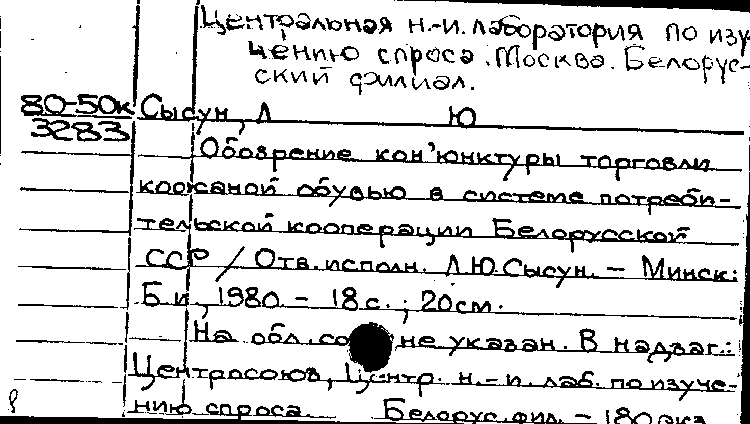 Центральная н.-и. лаборатория по изу-
чению спроса. Москва. Белорус-
ский филиал.
80-50к Сысун, Л Ю
3283
Обозрение кон'юнктуры торговли
кожаной обувью в системе потреби-
тельской кооперации Белорусской
ССР / Отв. исполн. Л.Ю. Сысун. - Минск:
Б.и., 1980. - 18 с. ; 20 см.
На обл. не указан. В надзаг.:
Центросоюз, Центр. н.-и. лаб. по изуче-
нию спроса. Белорус. фил. - 180 экз.